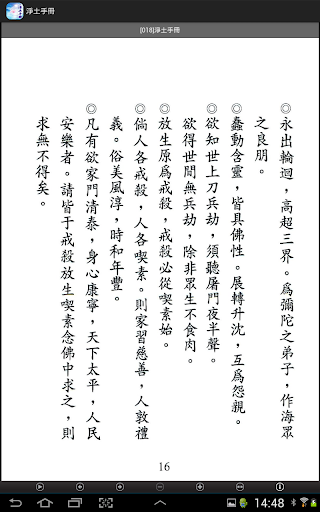 淨土手冊
[018]淨土手冊
◎永出輪迴，高超三界。為彌陀之弟子，作海眾
之良朋。
◎蠢動含靈，皆具佛性。展轉升沈，互為怨親。
◎欲知世上刀兵劫，須聽屠門夜半聲。
欲得世間無兵劫，除非眾生不食肉。
◎放生原為戒殺，戒殺必從喫素始。
◎倘人各戒殺，人各喫素。則家習慈善，人敦禮
義。俗美風淳，時和年豐。
◎凡有欲家門清泰，身心康寧，天下太平，人民
安樂者。請皆于戒殺放生喫素念佛中求之，則
求無不得矣。
16
14:48